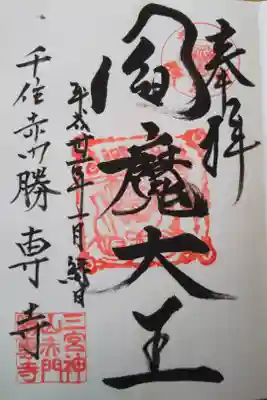 奉拝
閻魔大王
平成廿年一月縁日
千住赤門勝専寺
三宮神
山赤門
勝専寺